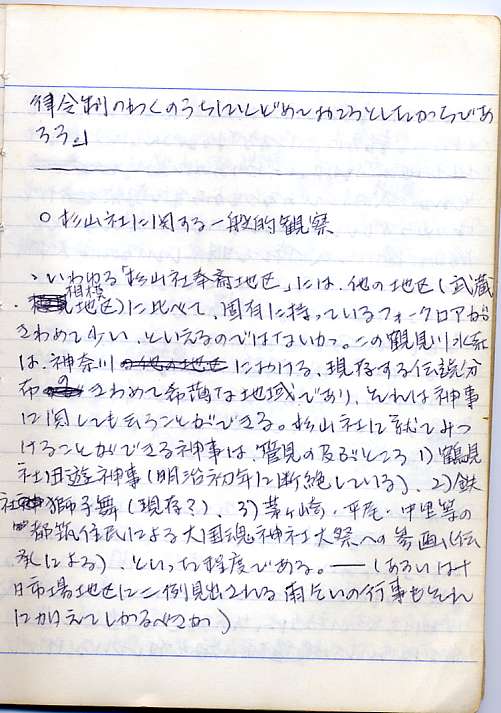 律令制のわくのうちにとどめておこうとしたかっちであ
ろう。」
○ 杉山社に関する一般的観察
、いわゆる「杉山社奉斎地区」には、他の地区(武蔵
・相模地区)に比べて、固有に持っているフォークロアが
きわめて少い、といえるのではないか。この鶴見川水系
は、神奈川における、現存する伝説分
布のきわめて希薄な地域であり、それは神事
に関しても云うことができる。杉山社に就てみつ
けることができる神事は、管見の及ぶところ 1)鶴見
社田遊神事(明治初年に断絶している)、2)鉄
社獅子舞(現存?)、3)茅ヶ崎・平尾・中里等の
都筑住民による大国魂神社大祭への参画(伝
承による)、といった程度である。――(あるいは十
日市場地区に二例見出される雨乞いの行事もそれ
に加えてしかるべきか)